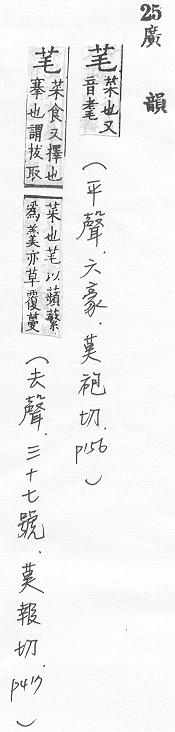 25廣 韻
芼菜也又音耄(平聲.六豪.莫袍切.p156)
芼菜食又擇也搴也謂拔取菜也芼以蘋蘩爲羹亦草覆蔓(去聲.三十七號.莫報切.p417)